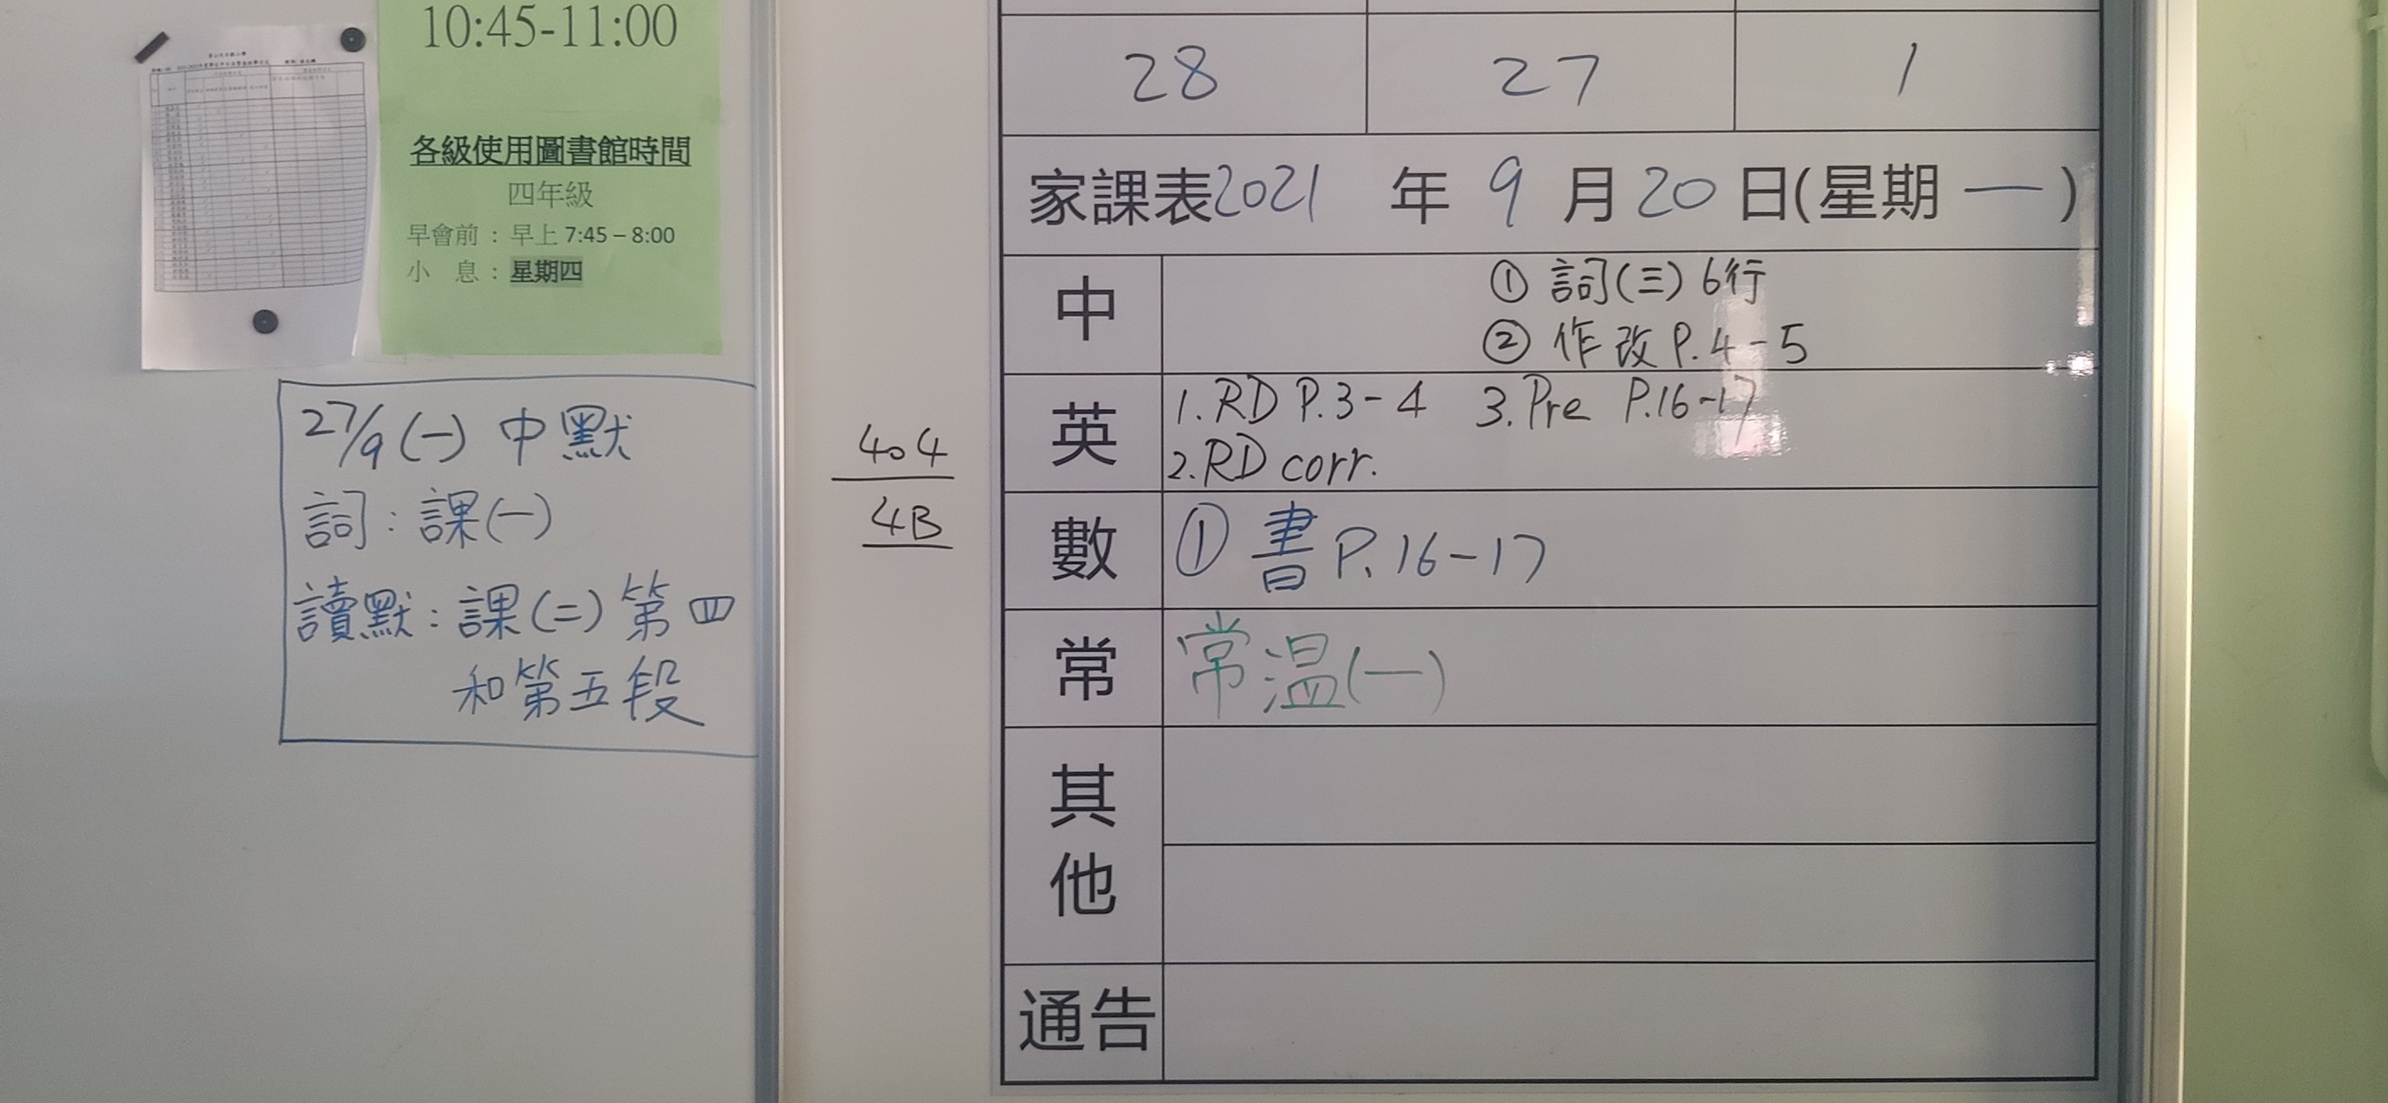 10:45-11:00
各級使用圖書館時間
四年級
早會前：早上 7:45 – 8:00
小 息：星期四
27/9 (一) 中默
詞：課(一)
讀默：課(二) 第四
和第五段
404
4B
28 27 1
家課表2021 年 9 月 20 日(星期 一)
中
① 詞(三) 6行
② 作改 P.4-5
英
1. RD P.3-4 3. Pre P.16-17
2. RD corr.
數 ① 書 P.16-17
常 常温(一)
其他
通告